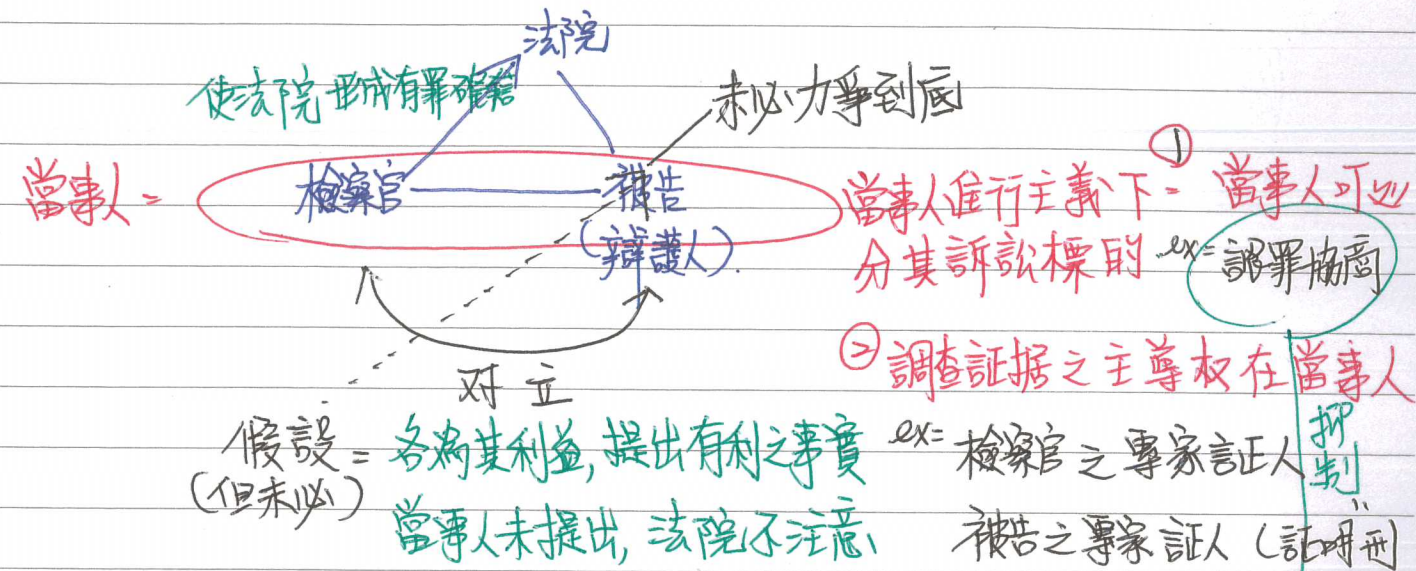 法院
使法院形成有罪確信
未必力爭到底
當事人=
檢察官
被告
(辯護人)
當事人進行主義下= ① 當事人可処
分其訴訟標的 ex=認罪協商
②調查証据之主導权在當事人
对立
假設=各為其利益,提出有利之事實
(但未必)
當事人未提出,法院不注意
ex=檢察官之專家証人
被告之專家証人
抑制